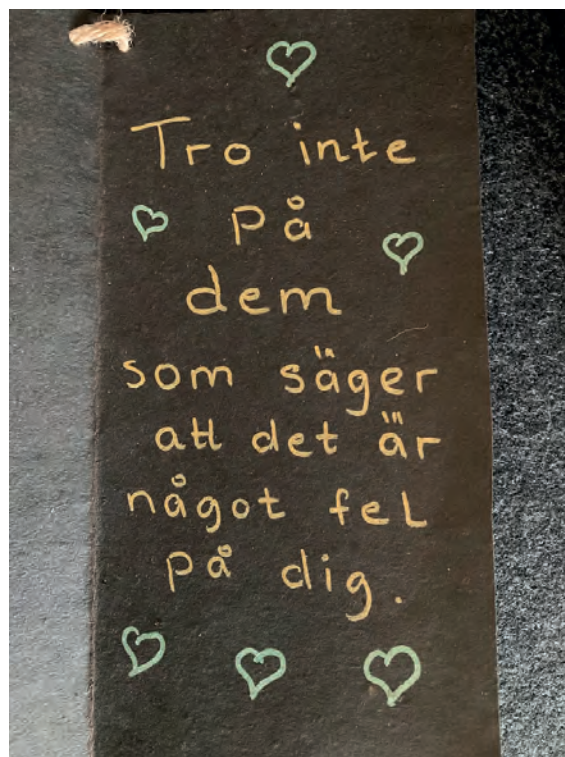 Tro inte
på
dem
som säger
att det är
något fel
på dig.